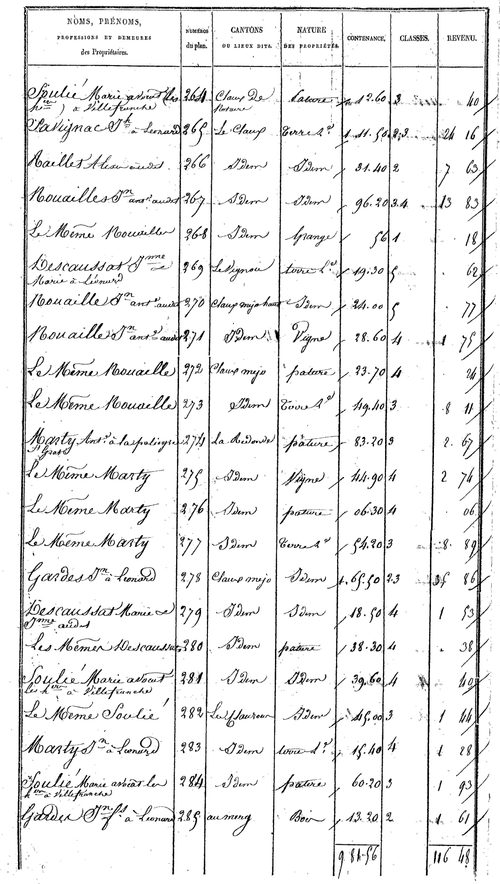 NOMS, PRÉNOMS, PROFESSIONS ET DEMEURES des Propriétaires. NUMÉROS du plan. CANTONS OU LIEUX DITS. NATURE DES PROPRIÉTÉS. CONTENANCE. CLASSES. REVENU.
Soulié Marie avocat (les 264 Claux De pature 12.60 3 40
h.ers) à Villefranche
Savignac Jh à Léonard 265 Le Claux terre 1 11.50 2.3 24 16
266 Idem Idem 31.40 2 7 63
Nouailles Jn 267 Idem Idem 96.20 3.4 13 83
Le Même Nouailles 268 Idem Grange 56 1 18
Descaussat Jme 269 Le Vignou terre 19.30 5 62
Marie à Léonard
Nouaille Jn 270 Claux mijo Idem 24.00 5 77
Nouaille Jn 271 Idem Vigne 28.60 4 1 75
Le Même Nouaille 272 Claux mijo pature 23.70 4 24
Le Même Nouaille 273 Idem Terre 49.40 3 8 11
Marty Ant. à la 274 La Redonde pature 83.20 3 2 67
Le Même Marty 275 Idem Vigne 44.90 4 2 74
Le Même Marty 276 Idem pature 06.30 4 06
Le Même Marty 277 Idem Terre 54.20 3 8 89
Gardes Jn à Léonard 278 Claux mijo Idem 1.65.50 2.3 35 86
Descaussat Marie 279 Idem Idem 18.50 4 1 53
Jme
Les Mêmes Descaussat 280 Idem pature 38.30 4 38
Soulié Marie avocat 281 Idem Idem 39.60 4 40
les h.ers à Villefranche
Le Même Soulié 282 Idem 45.00 3 1 44
Marty Jn à Léonard 283 Idem terre 15.40 4 1 28
Soulié Marie avocat les 284 Idem pature 60.20 3 1 93
h.ers à Villefranche
Gardes Jn fs à Léonard 285 Bois 13.20 2 1 61
9 81.56 116 48